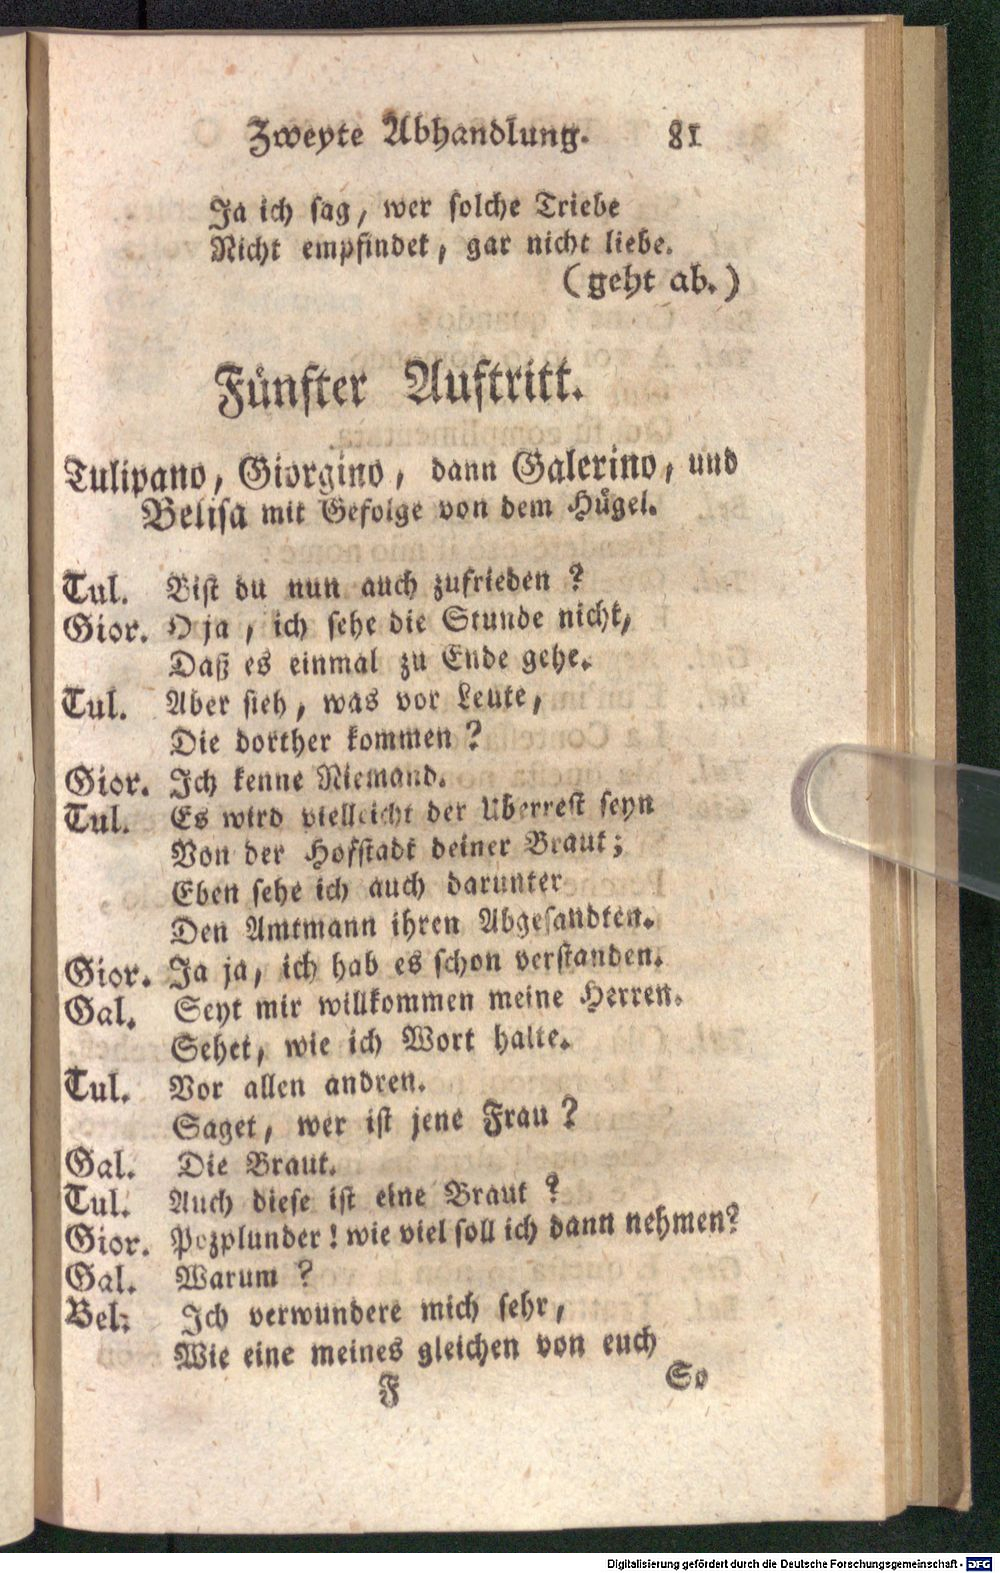 Zweyte Abhandlung. 81
Ja ich sag, wer solche Triebe
Nicht empfindet, gar nicht liebe.
(geht ab.)
Fünfter Auftritt.
Tulipano, Giorgino, dann Galerino, und
Belisa mit Gefolge von dem Hügel.
Tul. Bist du nun auch zufrieden?
Gior. O ja, ich sehe die Stunde nicht,
Daß es einmal zu Ende gehe.
Tul. Aber sieh, was vor Leute,
Die dorther kommen?
Gior. Ich kenne Niemand.
Tul. Es wird vielleicht der Uberrest seyn
Von der Hofstadt deiner Braut;
Eben sehe ich auch darunter
Den Amtmann ihren Abgesandten.
Gior. Ja ja, ich hab es schon verstanden.
Gal. Seyt mir willkommen meine Herren.
Sehet, wie ich Wort halte.
Tul. Vor allen andren.
Saget, wer ist jene Frau?
Gal. Die Braut.
Tul. Auch diese ist eine Braut?
Gior. Pozplunder! wie viel soll ich dann nehmen?
Gal. Warum?
Bel. Ich verwundere mich sehr,
Wie eine meines gleichen von euch
F So
Digitalisierung gefördert durch die Deutsche Forschungsgemeinschaft - DFG